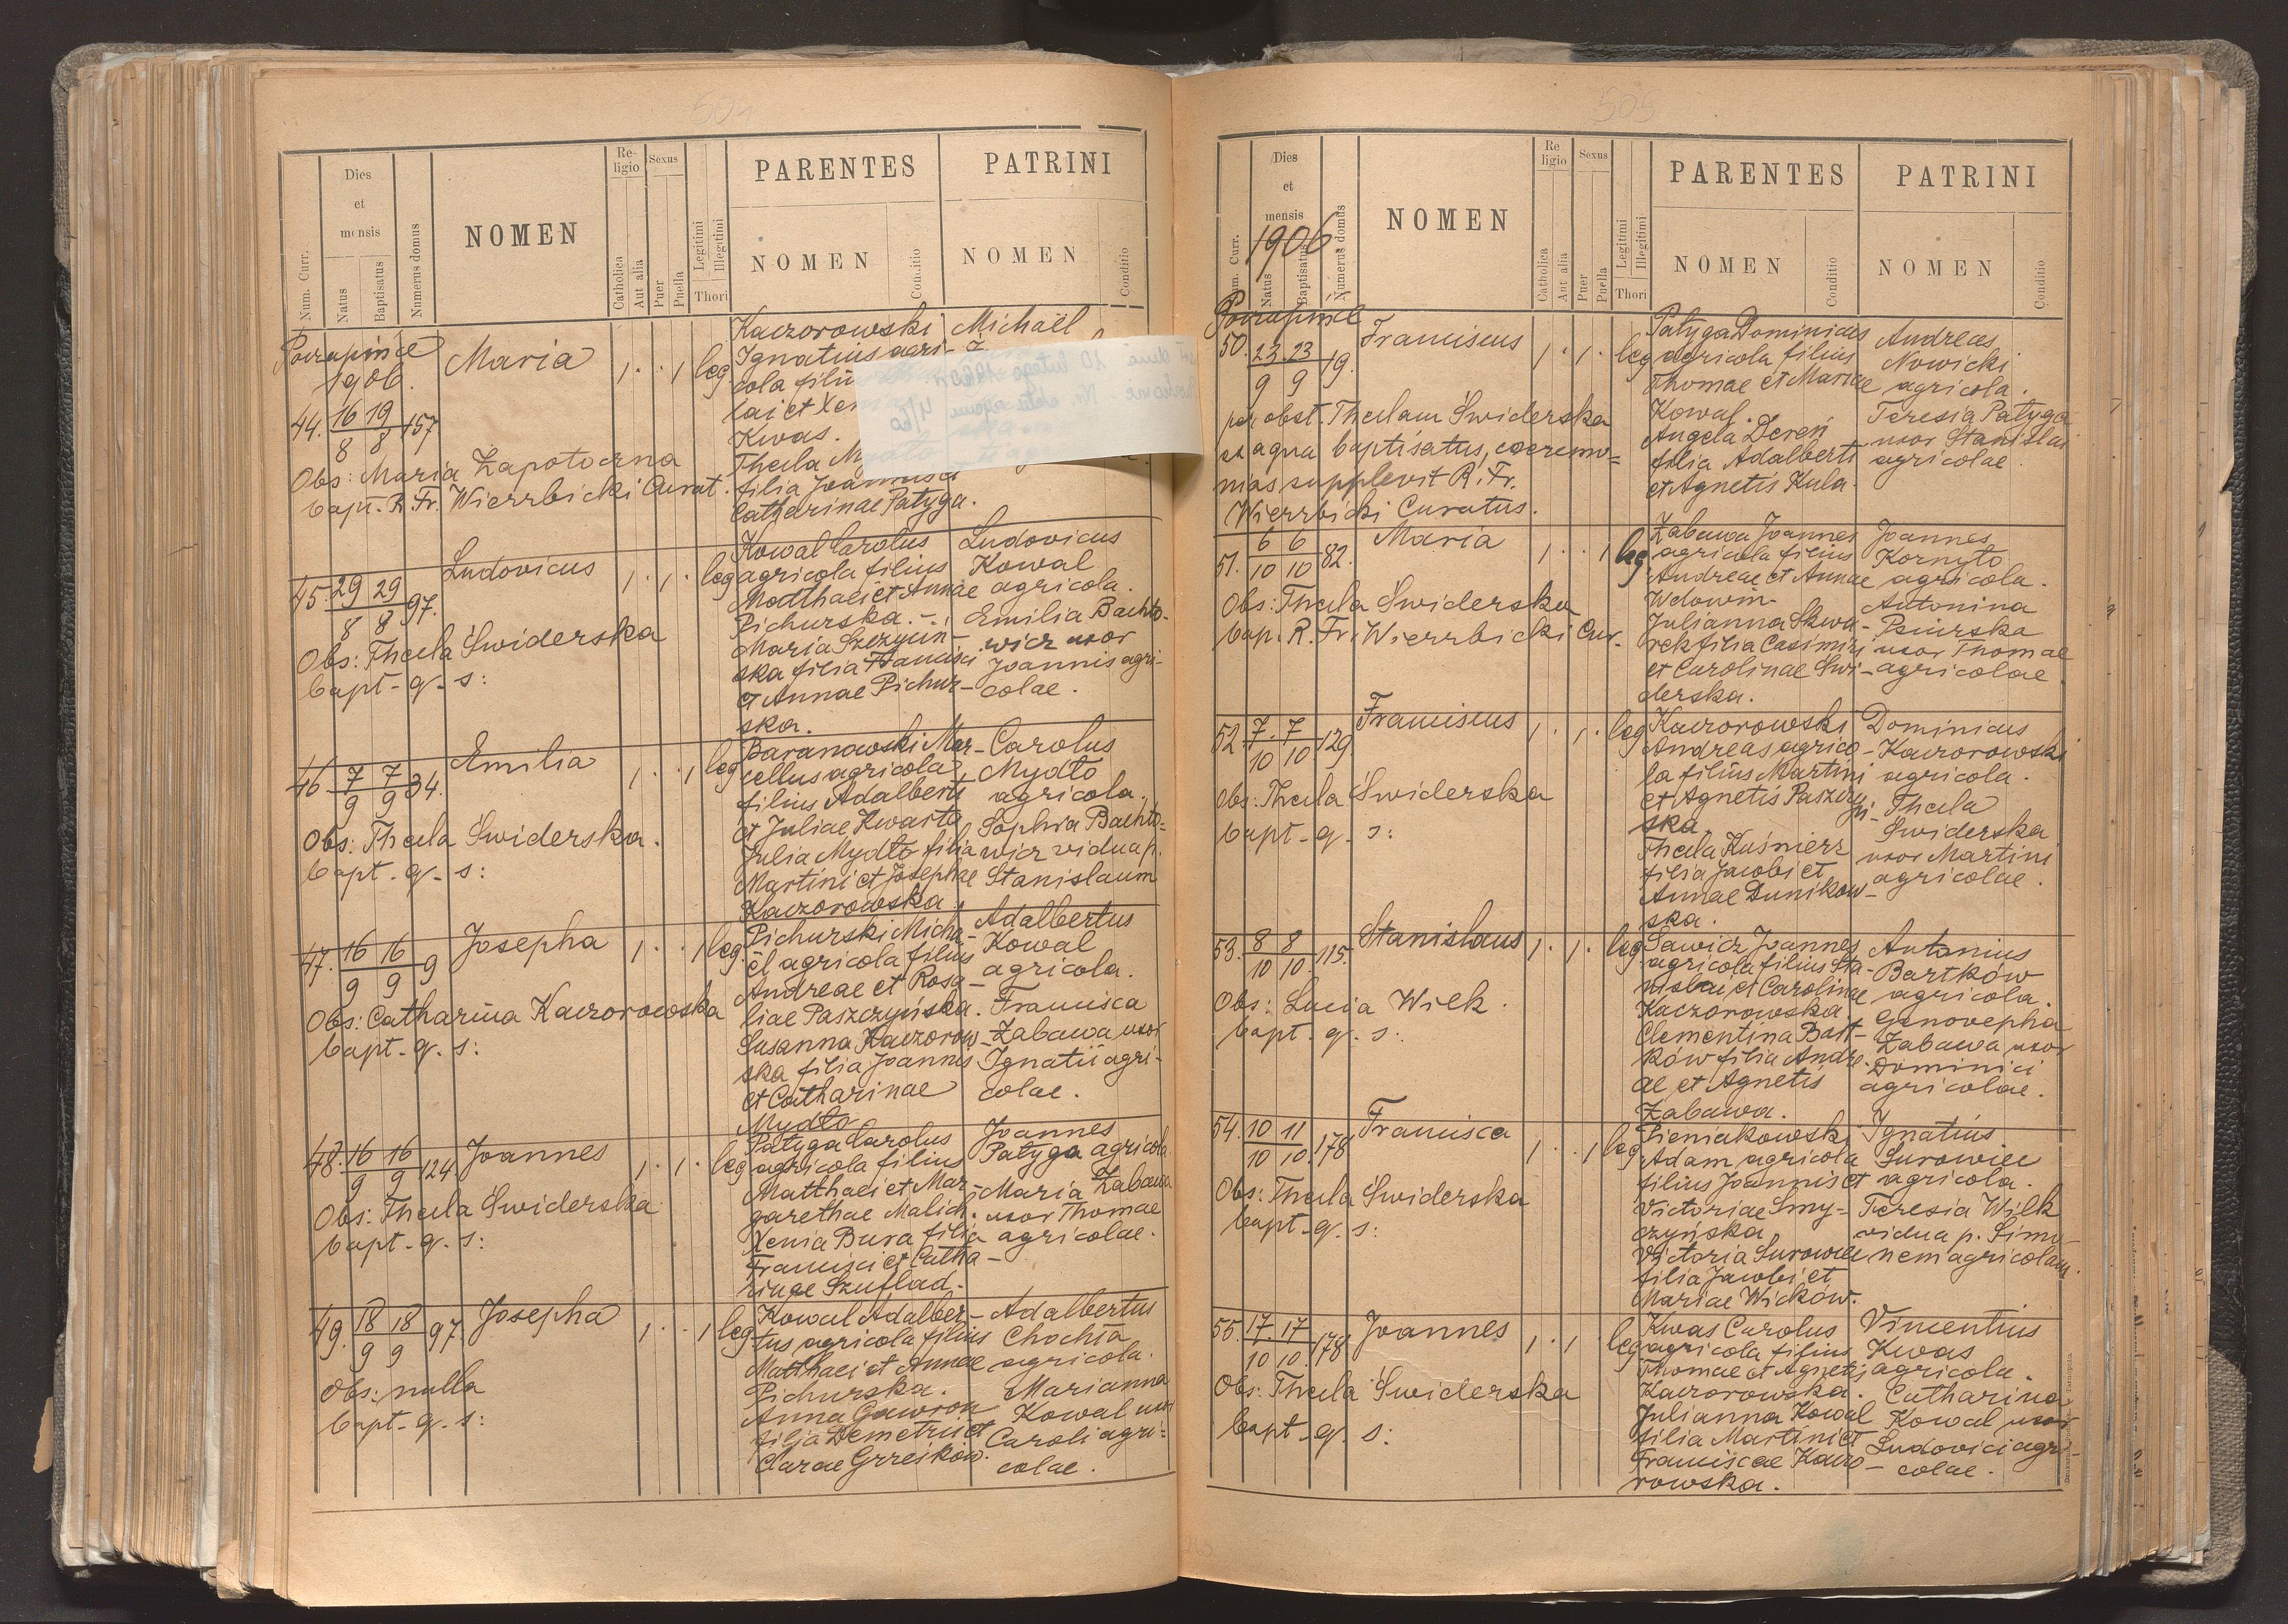 504
Dies
et
mensis
Re-
ligio
Sexus
PARENTES
PATRINI
NOMEN
NOMEN
NOMEN
Num. Curr.
Natus
Baptisatus
Numerus domus
Catholica
Aut alia
Puer
Puella
Legitimi
Illegitimi
Thori
Conditio
Conditio
1906.
44. 16/8 19/8 157
Maria
1 . . 1 leg
Kaczorowski
Ignatius agri-
cola filiu
lai et Xen
Kwas.
Thecla My
filia Joannis et
Catharinae Patyga.
Michaël
Obs: Maria Zapotoczna
bapt. R. Fr. Wierzbicki Curat.
45. 29/8 29/8 97.
Ludovicus
1 . 1 . leg
Kowal Carolus
agricola filius
Matthaei et Annae
Pichurska.
Maria Szczyuń-
ska filia Francisci
et Annae Pichur-
ska.
Ludovicus
Kowal
agricola.
Emilia Bachto-
wicz uxor
Joannis agri-
colae.
Obs: Thecla Świderska
bapt. q. s:
46. 7/9 7/9 34.
Emilia
1 . . 1 leg
Baranowski Mar-
cellus agricola
filius Adalberti
et Juliae Kwarta
Julia Mydło filia
Martini et Josephae
Kaczorowska.
Carolus
Mydło
agricola.
Sophia Bachto-
wicz vidua p.
Stanislaum
Obs: Thecla Świderska.
bapt. q. s:
47. 16/9 16/9 9
Josepha
1 . . 1 leg.
Pichurski Micha-
ël agricola filius
Andreae et Rosa-
liae Paszczyńska.
Susanna Kaczorow-
ska filia Joannis
et Catharinae
Mydło
Adalbertus
Kowal
agricola.
Francisca
Zabawa uxor
Ignatii agri-
colae.
Obs: Catharina Kaczorowska
bapt. q. s:
48. 16/9 16/9 124
Joannes
1 . 1 . leg
Patyga Carolus
agricola filius
Matthaei et Mar-
garethae Malich.
Xenia Bura filia
Francisci et Catha-
rinae Szuflad.
Joannes
Patyga agricola
Maria Zabawa
uxor Thomae
agricolae.
Obs: Thecla Świderska
bapt. q. s:
49. 18/9 18/9 97.
Josepha
1 . . 1 leg
Kowal Adalber-
tus agricola filius
Matthaei et Annae
Pichurska.
Anna Gawron
filia Demetrii et
Clarae Grześków.
Adalbertus
Chochła
agricola.
Marianna
Kowal uxor
Caroli agri-
colae.
Obs: nulla
bapt. q. s:
505
Dies
et
mensis
Re
ligio
Sexus
PARENTES
PATRINI
NOMEN
NOMEN
NOMEN
1906
Num. Curr.
Natus
Baptisatus
Numerus domus
Catholica
Aut alia
Puer
Puella
Legitimi
Illegitimi
Thori
Conditio
Conditio
50. 23/9 23/9 19.
Franciscus
1 . 1 . leg
Patyga Dominicus
agricola filius
Thomae et Mariae
Kowal.
Angela Dereń
filia Adalberti
et Agnetis Kula.
Andreas
Nowicki
agricola.
Teresia Patyga
uxor Stanislai
agricolae.
per obst. Theclam Świderska
ex agua baptisatus, caeremo-
nias supplevit R. Fr.
Wierzbicki Curatus.
51. 6/10 6/10 82.
Maria
1 . . 1 leg
Zabawa Joannes
agricola filius
Andreae et Annae
Wdowin.
Julianna Skwa-
rek filia Casimiri
et Carolinae Świ-
derska.
Joannes
Kornyło
agricola.
Antonina
Psiurska
uxor Thomae
agricolae
Obs: Thecla Świderska
bap. R. Fr. Wierzbicki Cur.
52. 7/10 7/10 129
Franciscus
1 . 1 . leg
Kaczorowski
Andreas agrico-
la filius Martini
et Agnetis Paszczyń-
ska.
Thecla Kuśnierz
filia Jacobi et
Annae Dunikow-
ska.
Dominicus
Kaczorowski
agricola.
Thecla
Świderska
uxor Martini
agricolae.
Obs: Thecla Świderska
bapt. q. s:
53. 8/10 8/10 115.
Stanislaus
1 . 1 . leg
Sawicz Joannes
agricola filius Sta-
nislai et Carolinae
Kaczorowska.
Clementina Bart-
ków filia Andre-
ae et Agnetis
Zabawa.
Antonius
Bartków
agricola.
Genovepha
Zabawa uxor
Dominici
agricolae.
Obs: Lucia Wilk.
bapt. q. s:
54. 10/10 11/10 178
Francisca
1 . . 1 leg
Pieniakowski
Adam agricola
filius Joannis et
Victoriae Smy-
czyńska
Victoria Surowiec
filia Jacobi et
Mariae Wicków.
Ignatius
Surowiec
agricola.
Teresia Wilk
vidua p. Simo-
nem agricolam.
Obs: Thecla Świderska
bapt. q. s:
55. 17/10 17/10 178
Joannes
1 . 1 leg
Kwas Carolus
agricola filius
Thomae et Agnetis
Kaczorowska.
Julianna Kowal
filia Martini et
Franciscae Kaczo-
rowska.
Vincentius
Kwas
agricola.
Catharina
Kowal uxor
Ludovici agri-
colae.
Obs: Thecla Świderska
bapt. q. s: